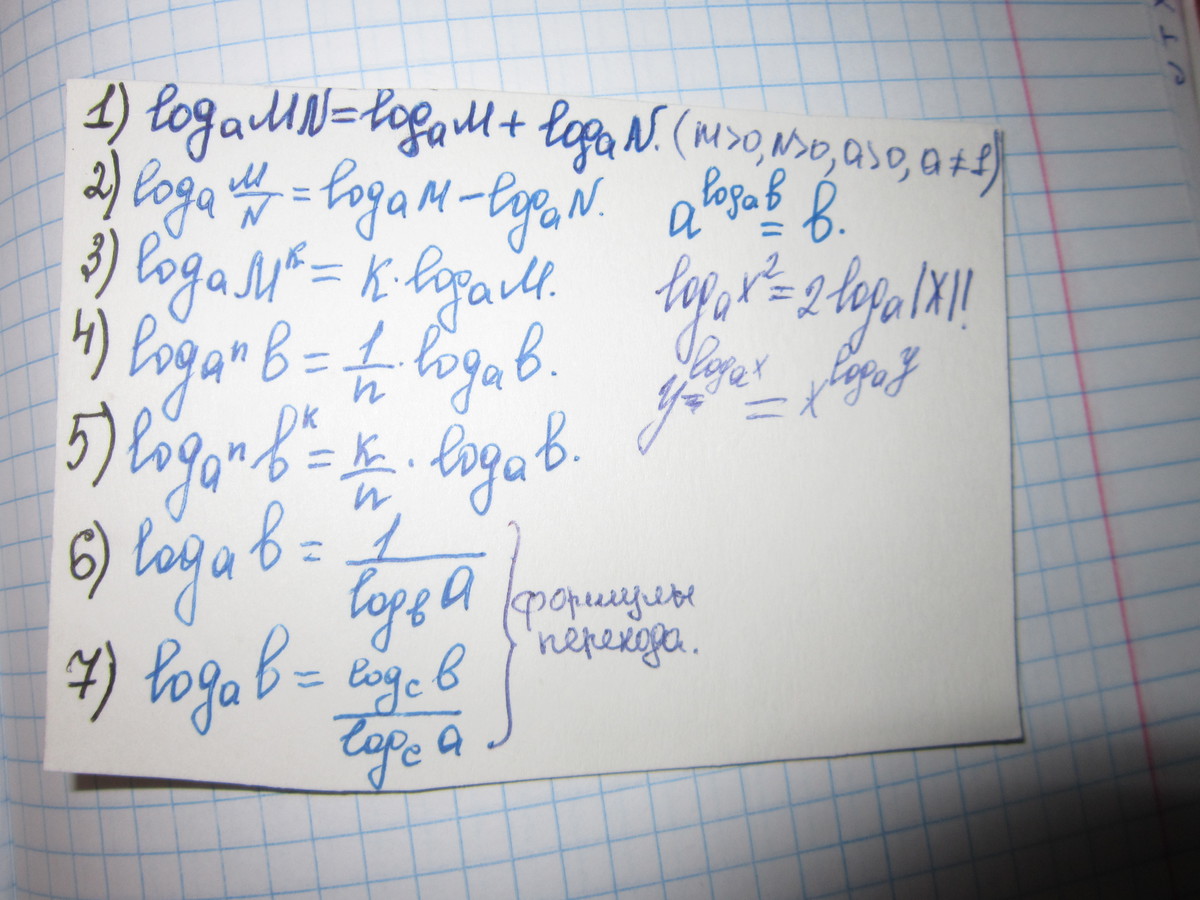 1) log_a MN = log_a M + log_a N. (M>0, N>0, a>0, a≠1)
2) log_a M/N = log_a M - log_a N.
a^(log_a b) = b.
3) log_a M^k = k · log_a M.
log_a x^2 = 2 log_a |x|!
4) log_a^n b = 1/n · log_a b.
y^(log_a x) = x^(log_a y)
5) log_a^n b^k = k/n · log_a b.
6) log_a b = 1/log_b a
формулы
перехода.
7) log_a b = log_c b/log_c a